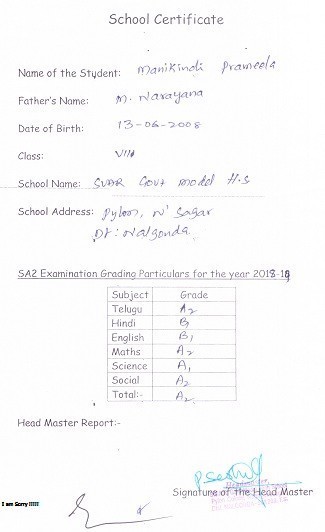 School Certificate
Name of the Student: Manikindi Prameela
Father's Name: M. Narayana
Date of Birth: 13-06-2008
Class: VIII
School Name: SVAR Govt model H.S
School Address: Pylon, N' Sagar
Dt: Nalgonda.
SA2 Examination Grading Particulars for the year 2018-19
Subject Grade
Telugu A2
Hindi B1
English B1
Maths A2
Science A1
Social A2
Total:- A2
Head Master Report:-
Signature of the Head Master
I am Sorry !!!!!